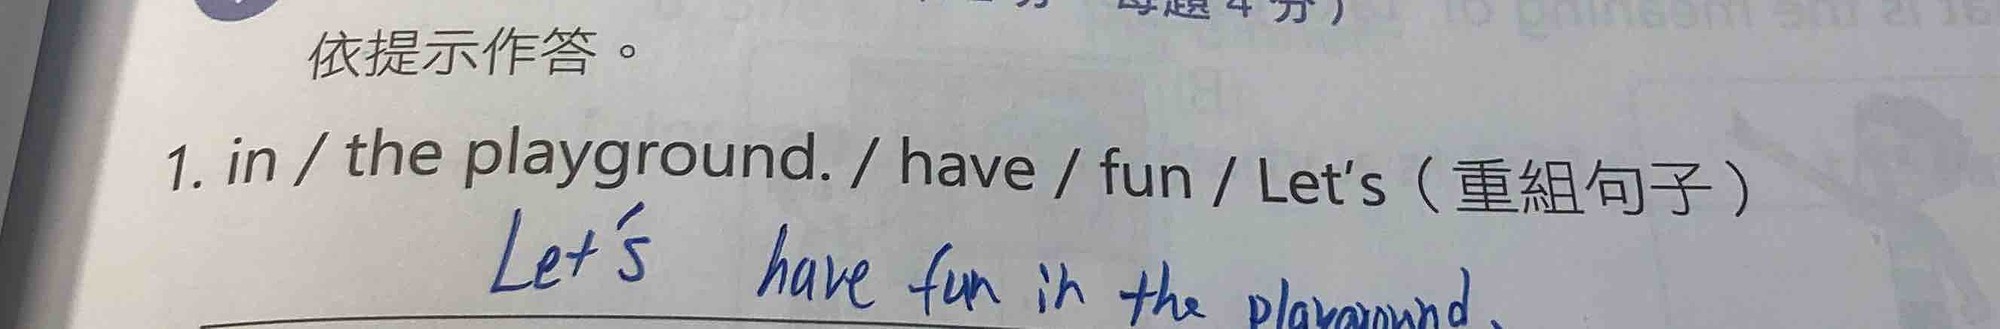 每題4分）
依提示作答。
1. in / the playground. / have / fun / Let's（重組句子）
Let's have fun in the playground.